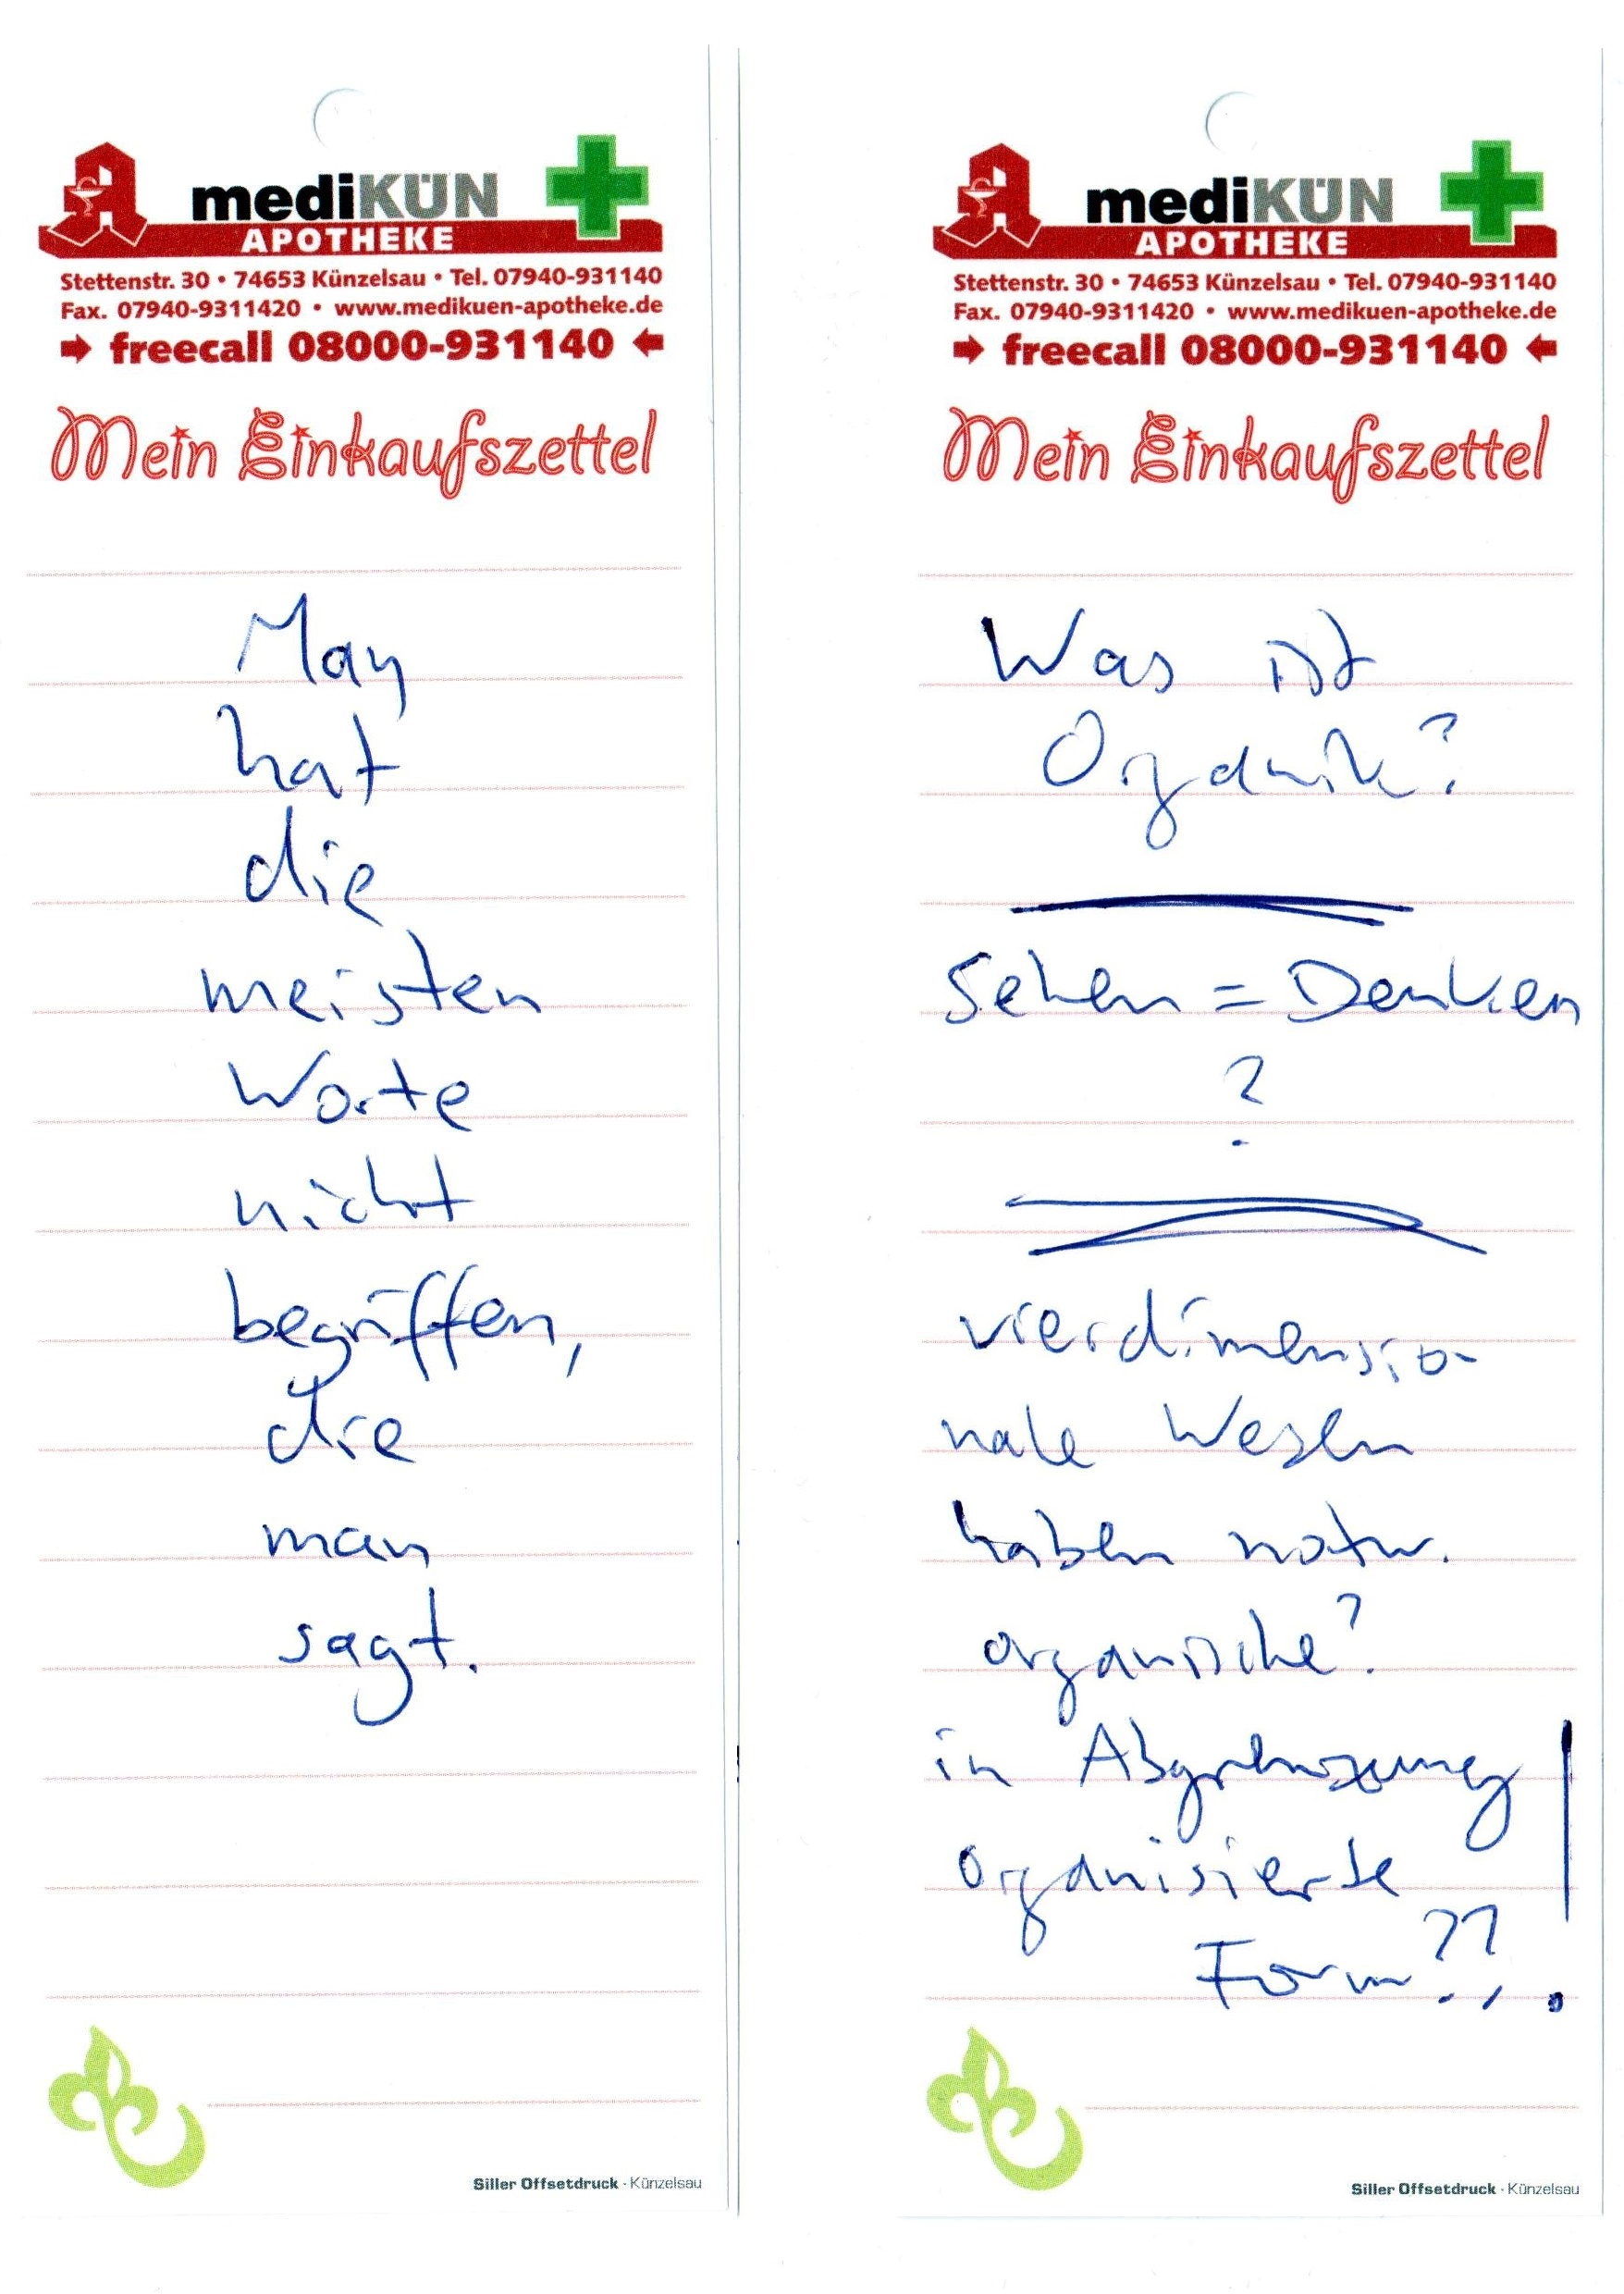 mediKÜN
APOTHEKE
Stettenstr. 30 • 74653 Künzelsau • Tel. 07940-931140
Fax. 07940-9311420 • www.medikuen-apotheke.de
freecall 08000-931140
Mein Einkaufszettel
May
hat
die
meisten
Worte
nicht
begriffen,
die
man
sagt.
Siller Offsetdruck · Künzelsau
mediKÜN
APOTHEKE
Stettenstr. 30 • 74653 Künzelsau • Tel. 07940-931140
Fax. 07940-9311420 • www.medikuen-apotheke.de
freecall 08000-931140
Mein Einkaufszettel
Was ist
Organik?
Sehen = Denken
?
vierdimensio-
nale Wesen
haben notw.
organische?
in Abgrenzung
organisierte
Form??!
Siller Offsetdruck · Künzelsau